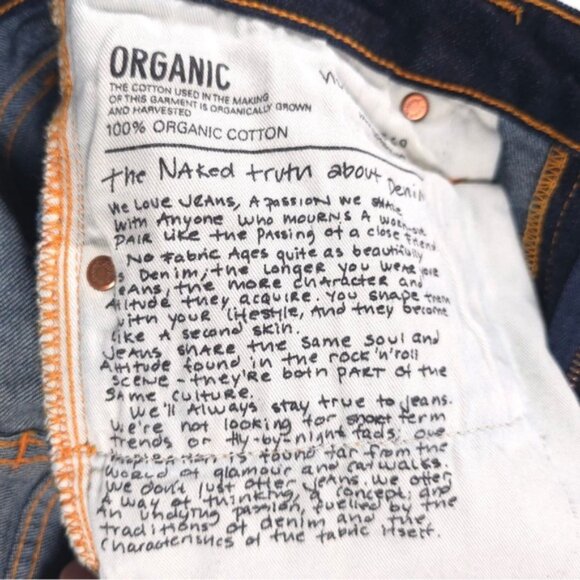 ORGANIC
THE COTTON USED IN THE MAKING
OF THIS GARMENT IS ORGANICALLY GROWN
AND HARVESTED
100% ORGANIC COTTON
The NAKed truth about Denim
We Love JEANS, A PASSION WE SHARE
With Anyone Who MOURNS A WORN-OUT
PAIR Like the Passing of a close friend
No Fabric Ages quite as beautifully
as Denim, the longer you wear your
jeans, the more character and
Attitude they acquire. You shape them
with your lifestyle, And they become
like A second skin.
Jeans share the same soul and
Attitude found in the rock'n'roll
scene - they're both part of the
same culture.
We'll Always stay true to jeans.
We're not looking for short term
trends or fly-by-night fads; our
inspiration is found far from the
world of glamour and catwalks.
We don't just offer jeans. We offer
A way of thinking, a concept, and
An undying passion, fuelled by the
traditions of denim and the
characteristics of the fabric itself.